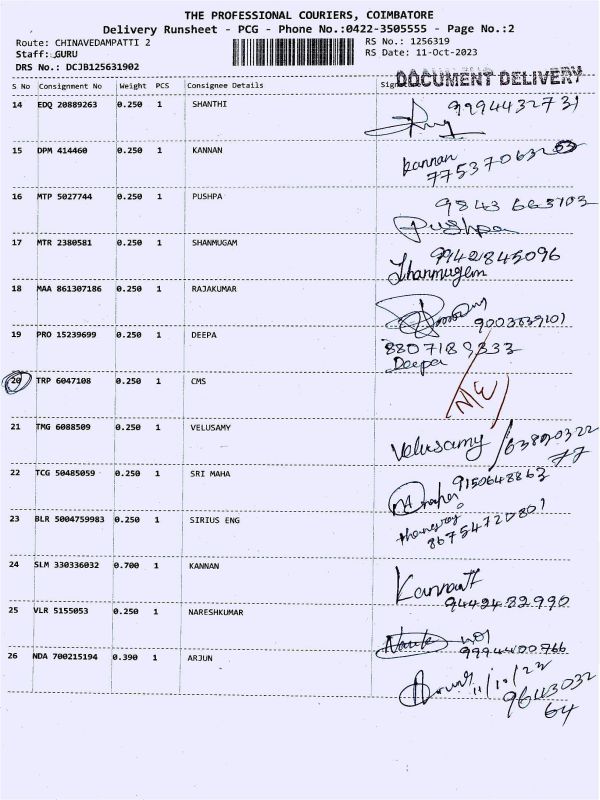 THE PROFESSIONAL COURIERS, COIMBATORE
Delivery Runsheet - PCG - Phone No.:0422-3505555 - Page No.:2
Route: CHINAVEDAMPATTI 2 RS No.: 1256319
Staff: GURU RS Date: 11-Oct-2023
DRS No.: DCJB125631902
DOCUMENT DELIVERY
S No Consignment No Weight PCS Consignee Details Signature
14 EDQ 20889263 0.250 1 SHANTHI 9994432731
15 DPM 414460 0.250 1 KANNAN kannan
775370632
16 MTP 5027744 0.250 1 PUSHPA 9843 663703
Pushpa
17 MTR 2380581 0.250 1 SHANMUGAM 9942845096
Shanmugam
18 MAA 861307186 0.250 1 RAJAKUMAR
9003839201
19 PRO 15239699 0.250 1 DEEPA 8807189333
Deepa
20 TRP 6047108 0.250 1 CMS N/C
21 TMG 6088509 0.250 1 VELUSAMY Velusamy / 63820322
77
22 TCG 50485059 0.250 1 SRI MAHA 9150648863
23 BLR 5004759983 0.250 1 SIRIUS ENG thangaraj
86754720801
24 SLM 330336032 0.700 1 KANNAN Kannan
9442482990
25 VLR 5155053 0.250 1 NARESHKUMAR
9994400766
26 NDA 700215194 0.390 1 ARJUN 11/10/22
9643032
64